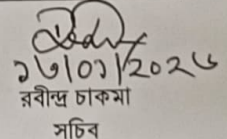 ১৭|০১|২০২৬
রবীন্দ্র চাকমা
সচিব